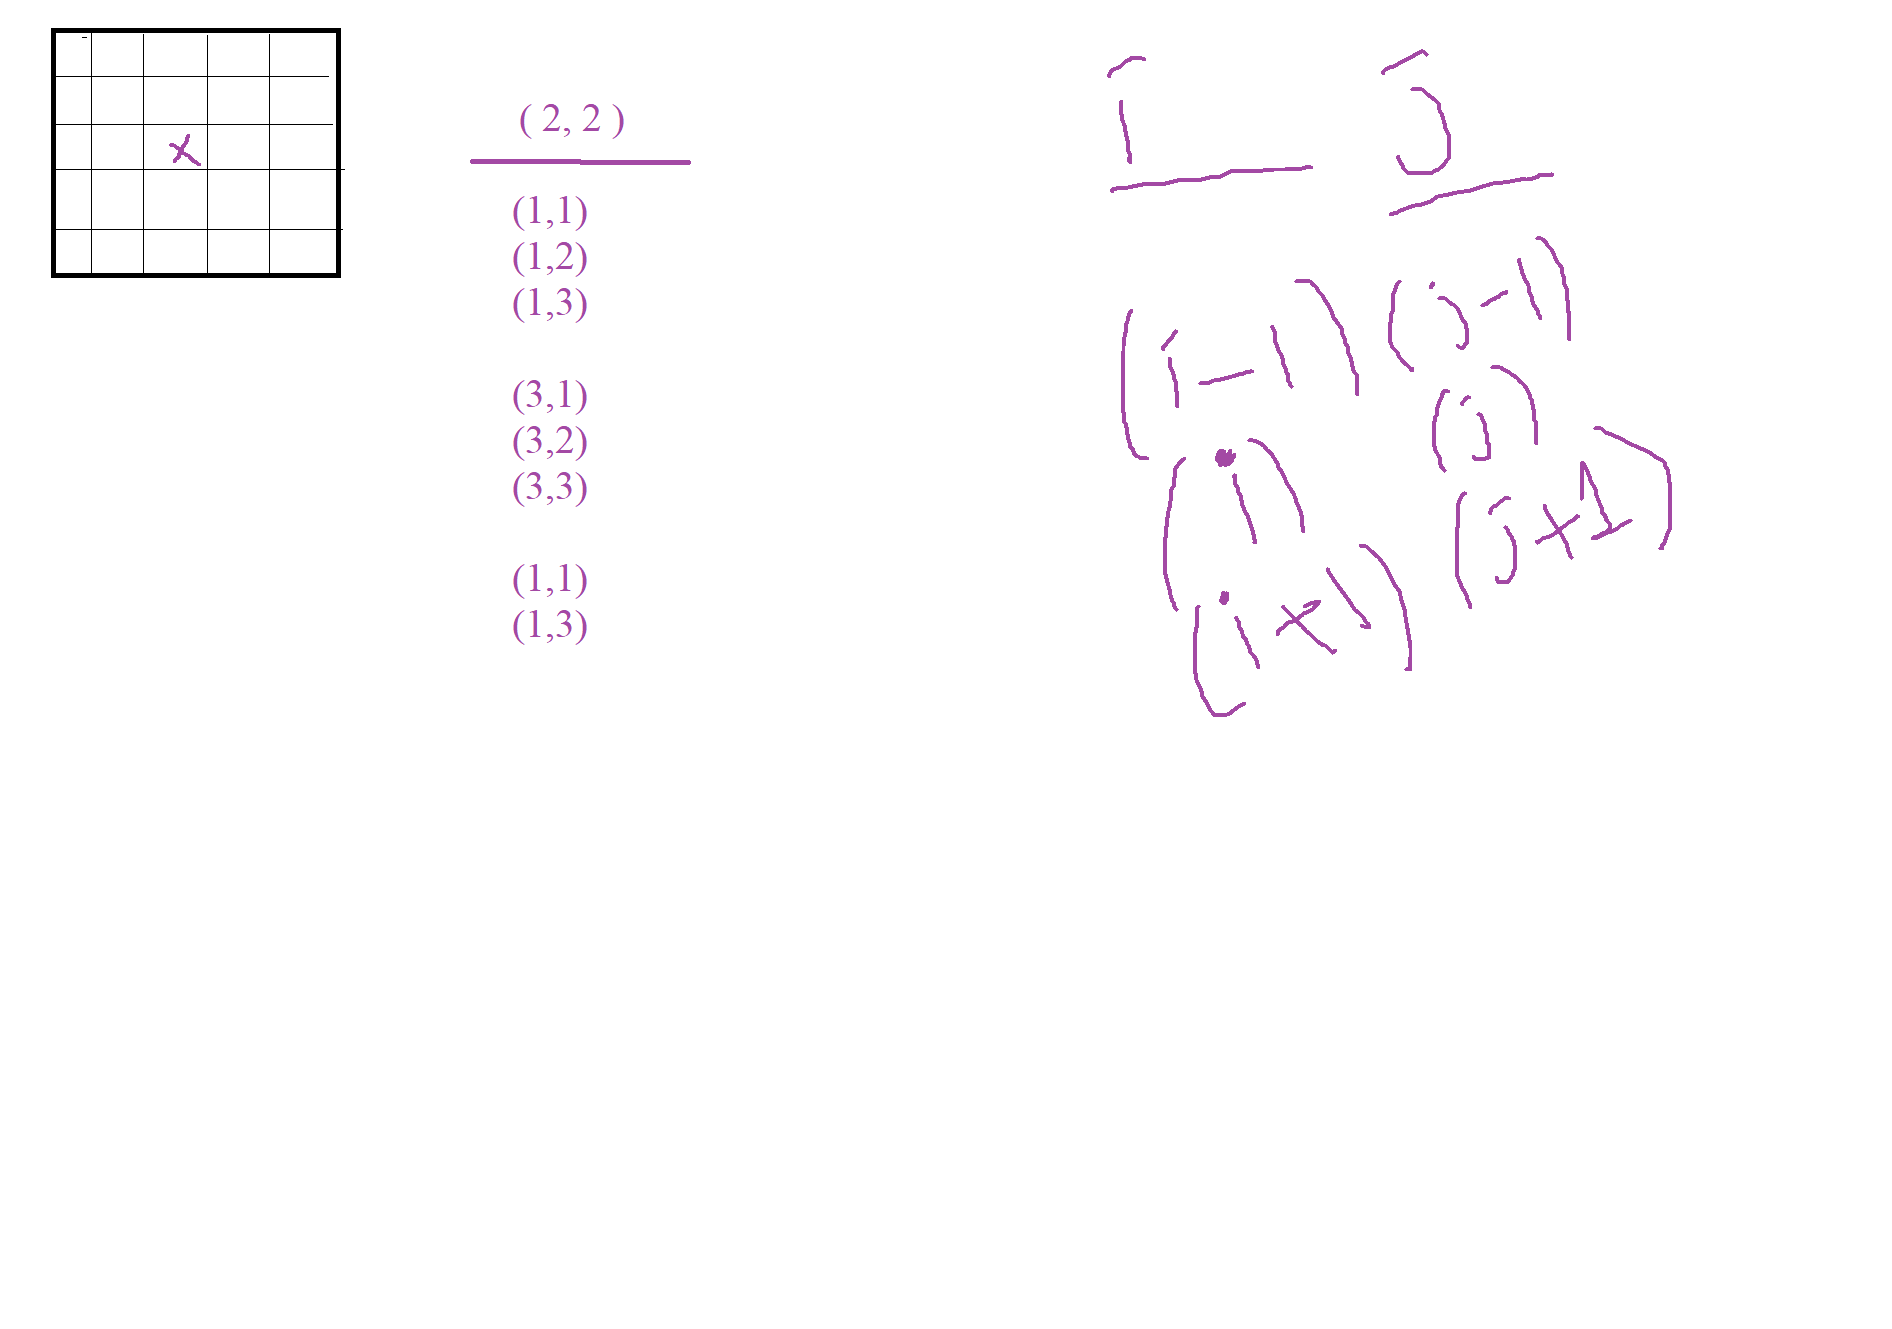 ( 2, 2 )
(1,1)
(1,2)
(1,3)
(3,1)
(3,2)
(3,3)
(1,1)
(1,3)
i j
(i-1) (j-1)
(i) (j)
(i+1) (j+1)
x